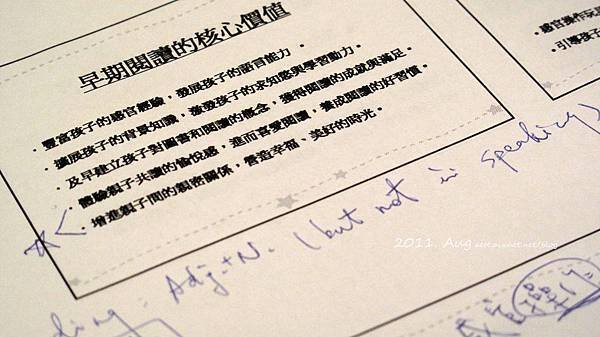 早期閱讀的核心價值
・豐富孩子的感官經驗，發展孩子的語言能力。
・擴展孩子的背景知識，激發孩子的求知慾與學習動力。
・及早建立孩子對圖書和閱讀的概念，獲得閱讀的成就與滿足。
・體驗親子共讀的愉悅感，進而喜愛閱讀，養成閱讀的好習慣。
・增進親子間的親密關係，營造幸福、美好的時光。
・感官操作玩
・引導孩子
ding. Adj.+N. (but not in speaking)
2011. Aug